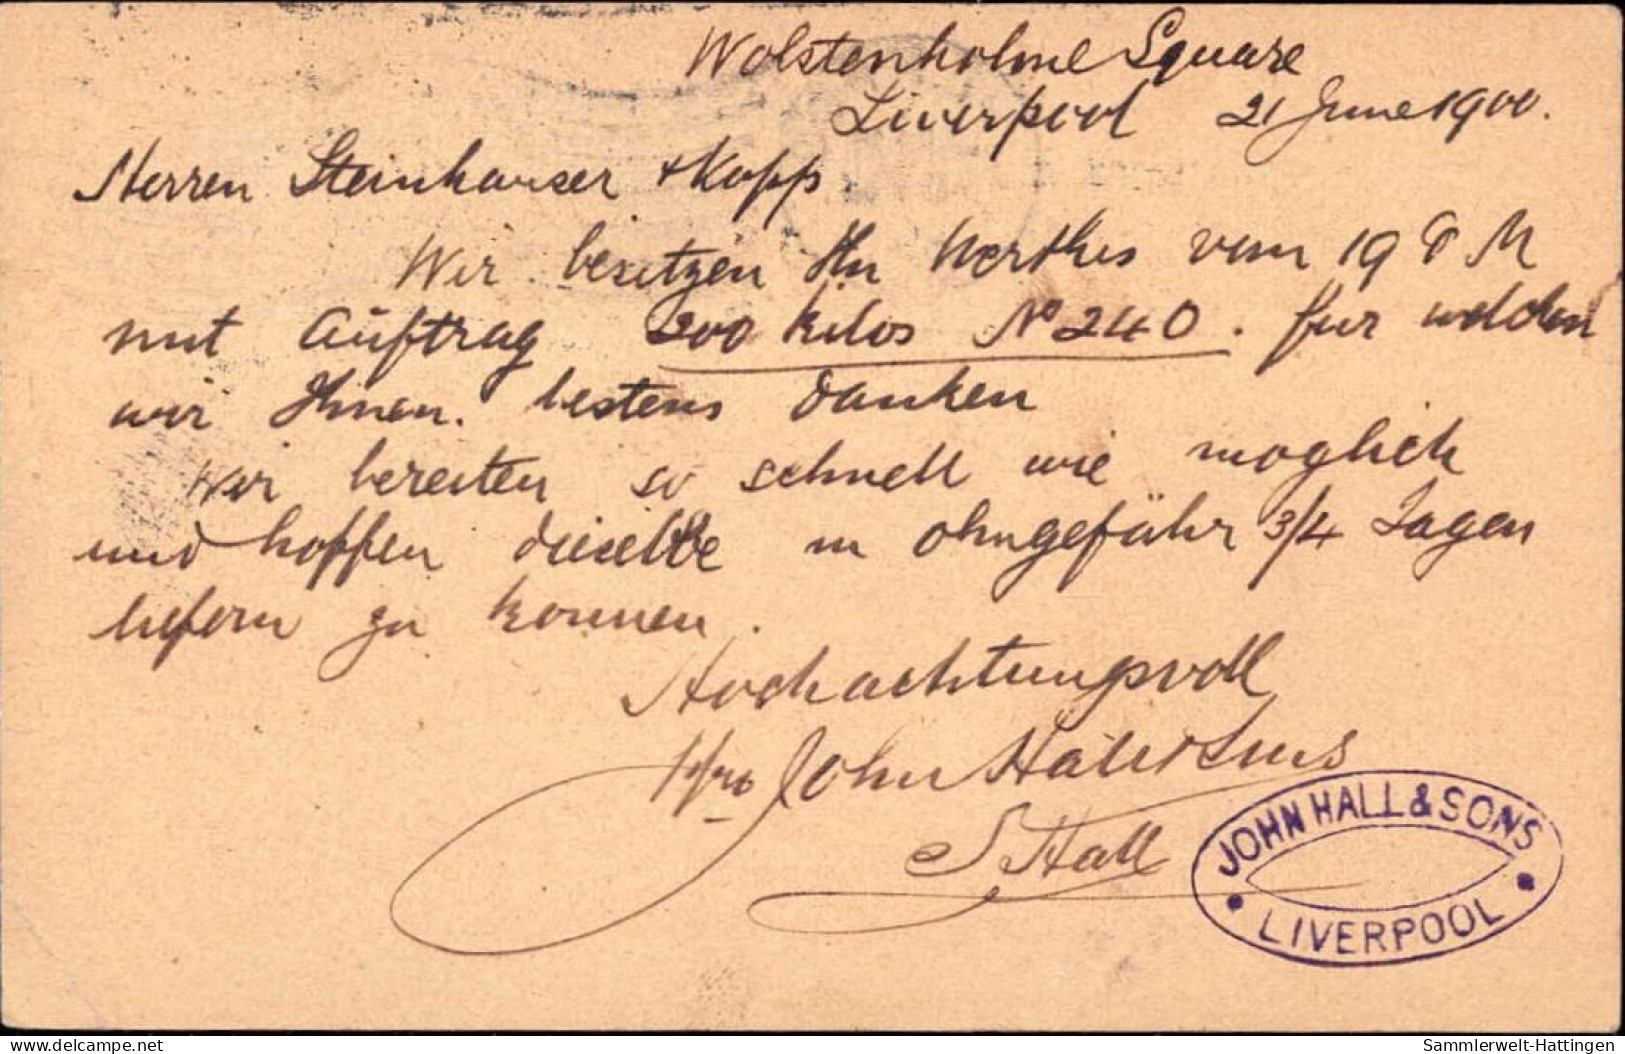 Wolstenholme Square
Liverpool 21 June 1900.
Herren Steinhauser & Kopp
Wir besitzen Ihr Werthes vom 19 d M
mit Auftrag 200 kilos No 240. fur welchen
wir Ihnen. bestens danken
Wir bereiten so schnell wie moglich
und hoffen dieselbe in ohngefähr 3/4 Tagen
liefern zu konnen.
Hochachtungsvoll
ppro John Hall & Sons
Hall
JOHN HALL & SONS
LIVERPOOL
delcampe.net
Sammlerwelt-Hattingen